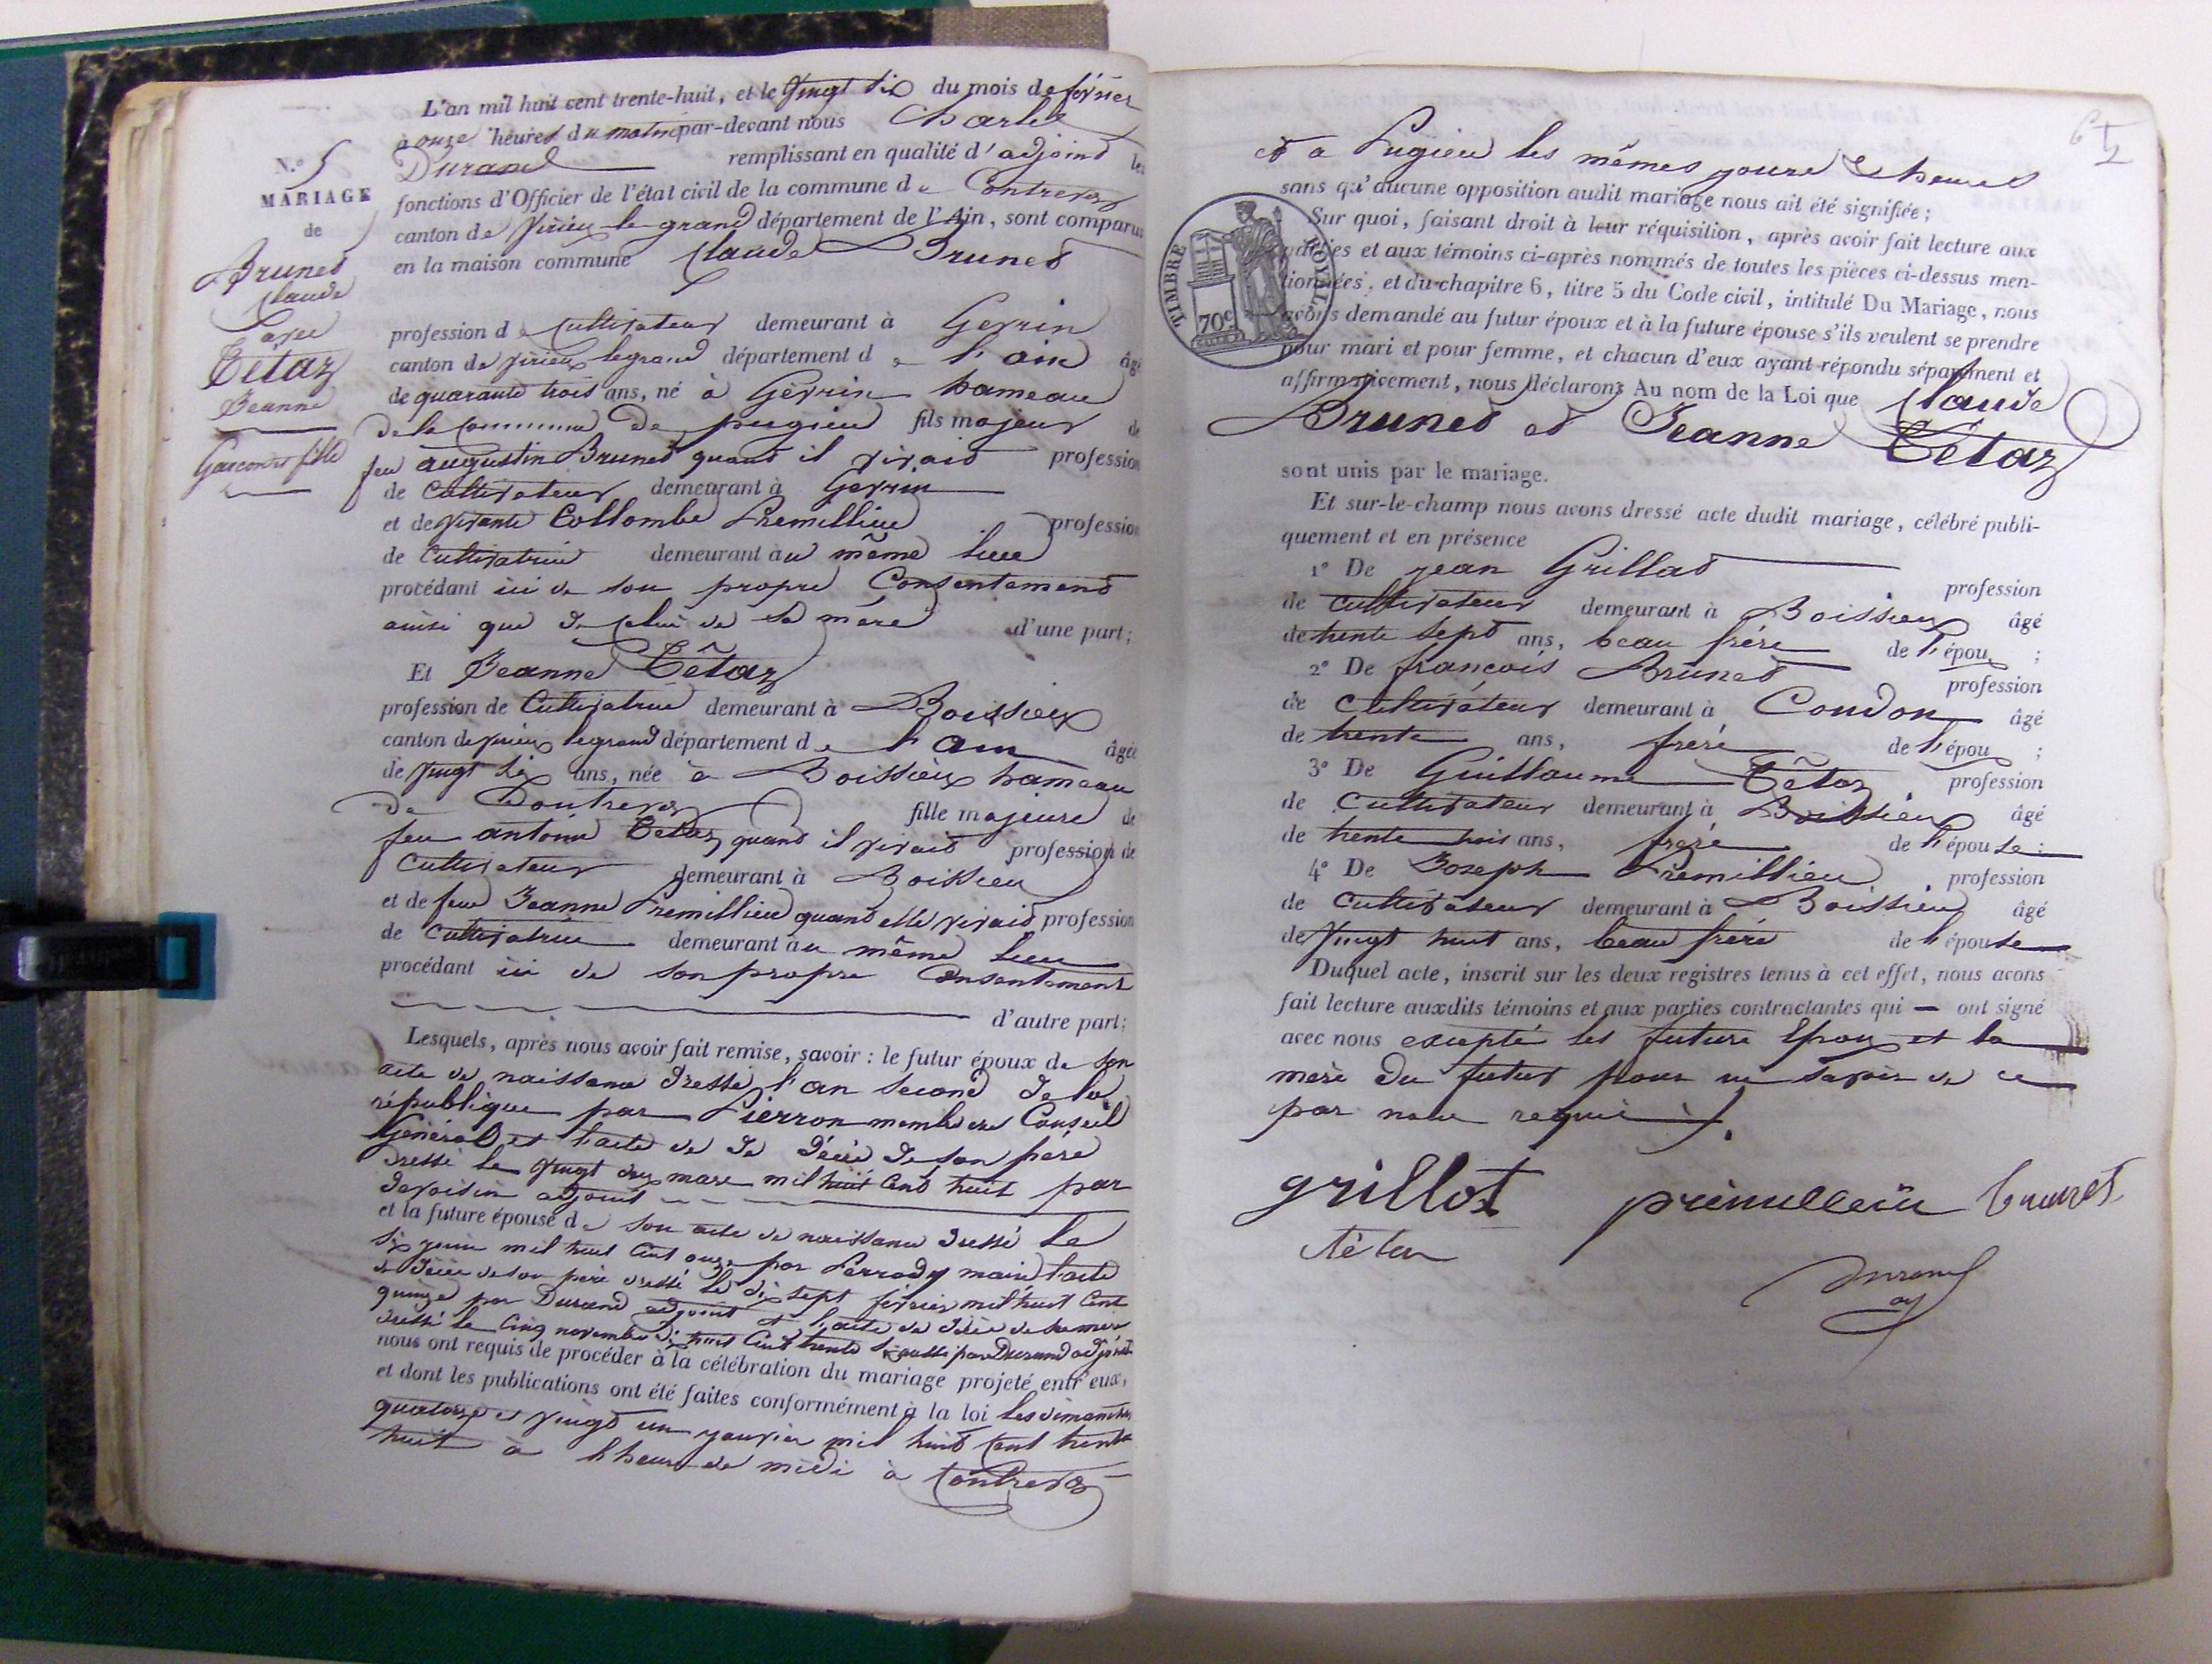 L'an mil huit cent trente-huit, et le vingt six du mois de février
à onze heures du matin par-devant nous Charles
Durand remplissant en qualité d'adjoint les
fonctions d'Officier de l'état civil de la commune de Contrevoz
canton de virieu le grand département de l'Ain, sont comparus
en la maison commune Claude Brunet
N.º 5
MARIAGE
de
Brunet
Claude
avec
Tétaz
Jeanne
Garcon et fille
profession de Cultivateur demeurant à Gevrin
canton de virieu legrand département de l'ain âgé
de quarante trois ans, né à Gevrin hameau
de la Commune De pugieu fils majeur de
feu augustin Brunet quand il vivait profession
de Cultivateur demeurant à Gevrin
et de vivante Collombe Premillieu profession
de Cultivatrice demeurant au même lieu
procédant ici de son propre Consentement
ainsi que de Celui de sa mère d'une part;
Et Jeanne Têtaz
profession de Cultivatrice demeurant à Boissieu
canton de virieu legrand département de l'ain âgée
de vingt six ans, née à Boissieu hameau
De Contrevoz fille majeure de
feu antoine Tetaz quand il vivait profession de
Cultivateur demeurant à Boissieu
et de feue Jeanne Premillieu quand elle vivait profession
de Cultivatrice demeurant au même lieu
procédant ici de son propre Consentement
d'autre part;
Lesquels, après nous avoir fait remise, savoir : le futur époux de son
acte de naissance Dressé l'an second de la
république par Pierron membre du Conseil
Général et l'acte de De Décès De son père
Dressé le vingt deux mars mil huit Cent huit par
Devoisin adjoint
et la future épouse de son acte de naissance Dressé le
Six juin mil huit Cent onze par Perrody maire l'acte
de Décès de son père dressé le dix sept février mil huit Cent
quinze par Durand adjoint et l'acte de Décès de sa mère
dressé le Cinq novembre huit Cent trente aussi par Durand adjoint
nous ont requis de procéder à la célébration du mariage projeté entr'eux,
et dont les publications ont été faites conformément à la loi les dimanches
quatorze et vingt un janvier mil huit Cent trente
huit à l'heure de midi à Contrevoz
et a Pugieu les mêmes jours & heures
sans qu'aucune opposition audit mariage nous ait été signifiée;
Sur quoi, faisant droit à leur réquisition, après avoir fait lecture aux
parties et aux témoins ci-après nommés de toutes les pièces ci-dessus men-
tionnées, et du chapitre 6, titre 5 du Code civil, intitulé Du Mariage, nous
avons demandé au futur époux et à la future épouse s'ils veulent se prendre
pour mari et pour femme, et chacun d'eux ayant répondu séparément et
affirmativement, nous déclarons Au nom de la Loi que Claude
Brunet et Jeanne Têtaz
TIMBRE ROYAL
70c
sont unis par le mariage.
Et sur-le-champ nous avons dressé acte dudit mariage, célébré publi-
quement et en présence
1º De jean Grillat profession
de Cultivateur demeurant à Boissieu âgé
de trente sept ans, beau frère de l'époux ;
2º De françois Brunet profession
de Cultivateur demeurant à Condon âgé
de trente ans, frère de l'époux ;
3º De Guillaume Têtaz profession
de Cultivateur demeurant à Boissieu âgé
de trente trois ans, frère de l'épouse ;
4º De Joseph Premillieu profession
de Cultivateur demeurant à Boissieu âgé
de vingt huit ans, beau frère de l'épouse
Duquel acte, inscrit sur les deux registres tenus à cet effet, nous avons
fait lecture auxdits témoins et aux parties contractantes qui — ont signé
avec nous excepté les future Epoux et la
mère du futur pour ne savoir de ce
par nous requis
grillot premillieu brunet
tétaz
Durand
adj